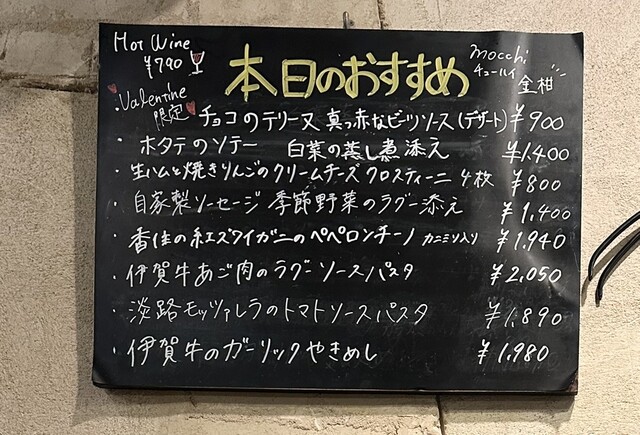 Hot Wine
¥790
本日のおすすめ
mocchi
チューハイ 金柑
・Valentine
限定 チョコのテリーヌ 真っ赤なビーツソース(デザート) ¥900
・ホタテのソテー 白菜の蒸し煮添え ¥1,400
・生ハムと焼きりんごのクリームチーズクロスティーニ 4枚 ¥800
・自家製ソーセージ 季節野菜のラグー添え ¥1,400
・香住の紅ズワイガニのペペロンチーノ カニミソ入り ¥1,940
・伊賀牛あご肉のラグーソースパスタ ¥2,050
・淡路モッツァレラのトマトソースパスタ ¥1,890
・伊賀牛のガーリックやきめし ¥1,980